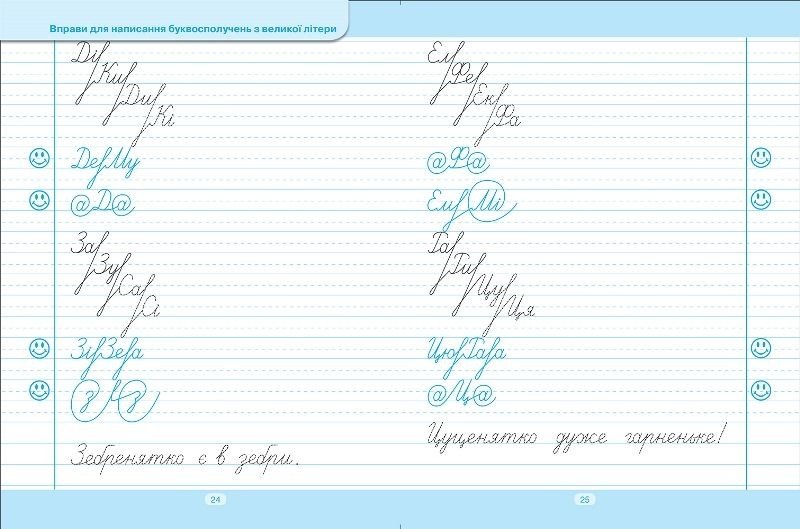 Вправи для написання буквосполучень з великої літери
Ді
Ки
Ди
Кі
ДеМу
@Д@
За
Зу
Са
Сі
ЗіЗе
з з
Зебренятко є в зебри.
24
Ел
Фе
Ек
Фа
@Ф@
ЕлиМі
Га
Ги
Цу
Ця
ЦюГа
@Ц@
Цуценятко дуже гарненьке!
25